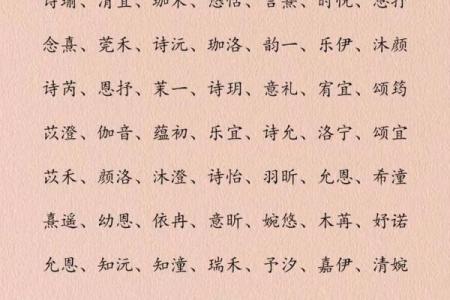 念熹、莞禾、诗沅、珈洛、韵一、乐伊、沐颜
诗芮、恩抒、茉一、诗玥、意礼、宥宜、颂筠
苡澄、伽音、蕴初、乐宜、诗允、洛宁、颂宜
苡禾、颜洛、沐澄、诗怡、羽昕、允恩、希潼
熹遥、幼恩、依冉、意昕、婉悠、木苒、妤诺
允恩、知沅、知潼、瑞禾、予汐、嘉伊、清婉